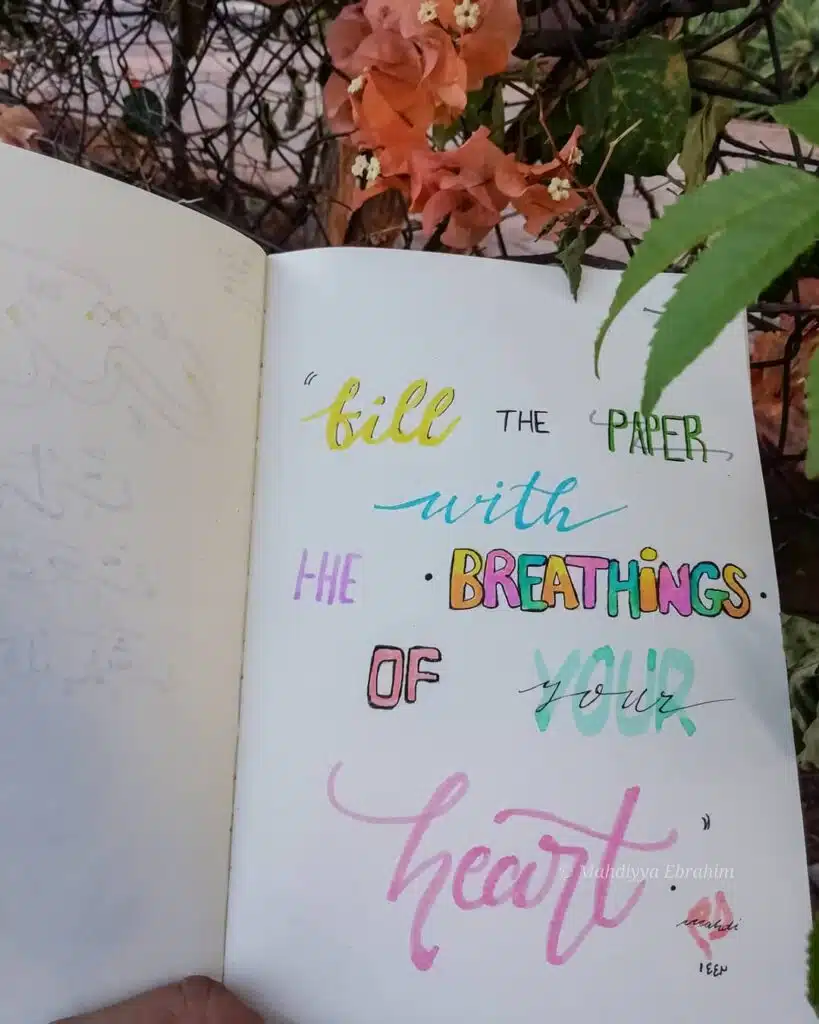 "fill THE PAPER
with
THE • BREATHINGS •
OF YOUR your
heart."
© Mahdiyya Ebrahim
mahdi
١٤٤٣